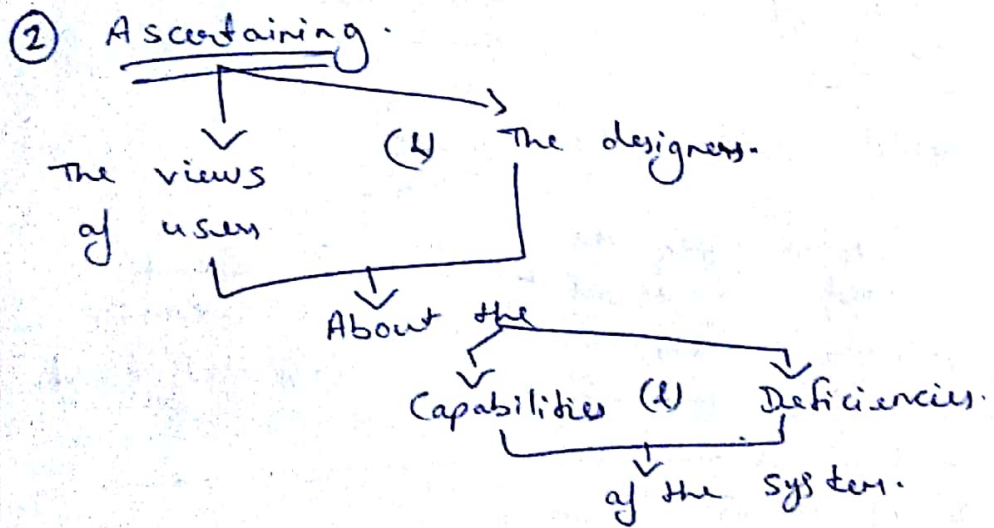 ② Ascertaining.
The views (&) The designers.
of users
About the
Capabilities (&) Deficiencies.
of the system.